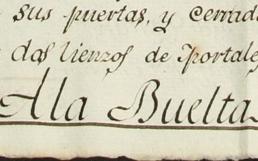 sus puertas, y cerrad
dos Lienzos de Portale
A la Buelta